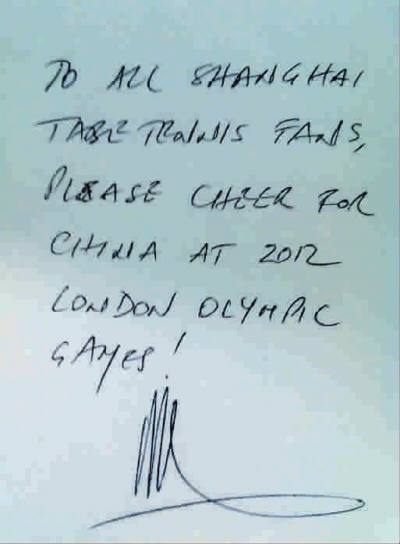 TO ALL SHANGHAI
TABLE TENNIS FANS,
PLEASE CHEER FOR
CHINA AT 2012
LONDON OLYMPIC
GAMES!